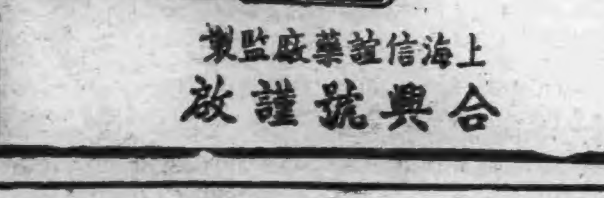 上海信誼藥廠監製
合興號謹啟